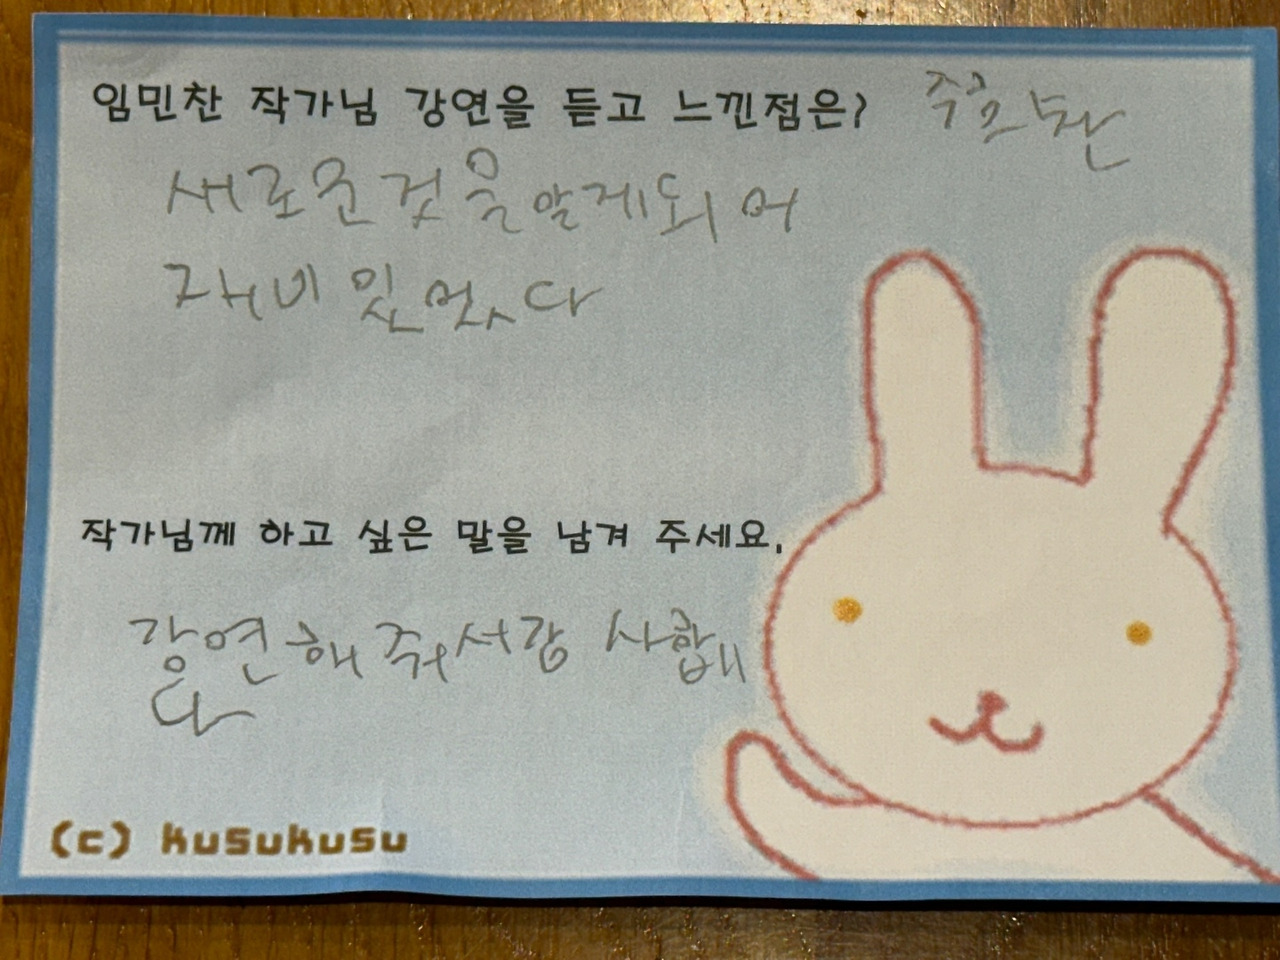 임민찬 작가님 강연을 듣고 느낀점은?
새로운것을알게되어
재미있었다
작가님께 하고 싶은 말을 남겨 주세요.
강연해줘서감사합니
다
(c) kusukusu